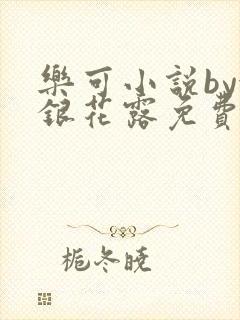 樂可小說by
銀花露免費
栀冬曉